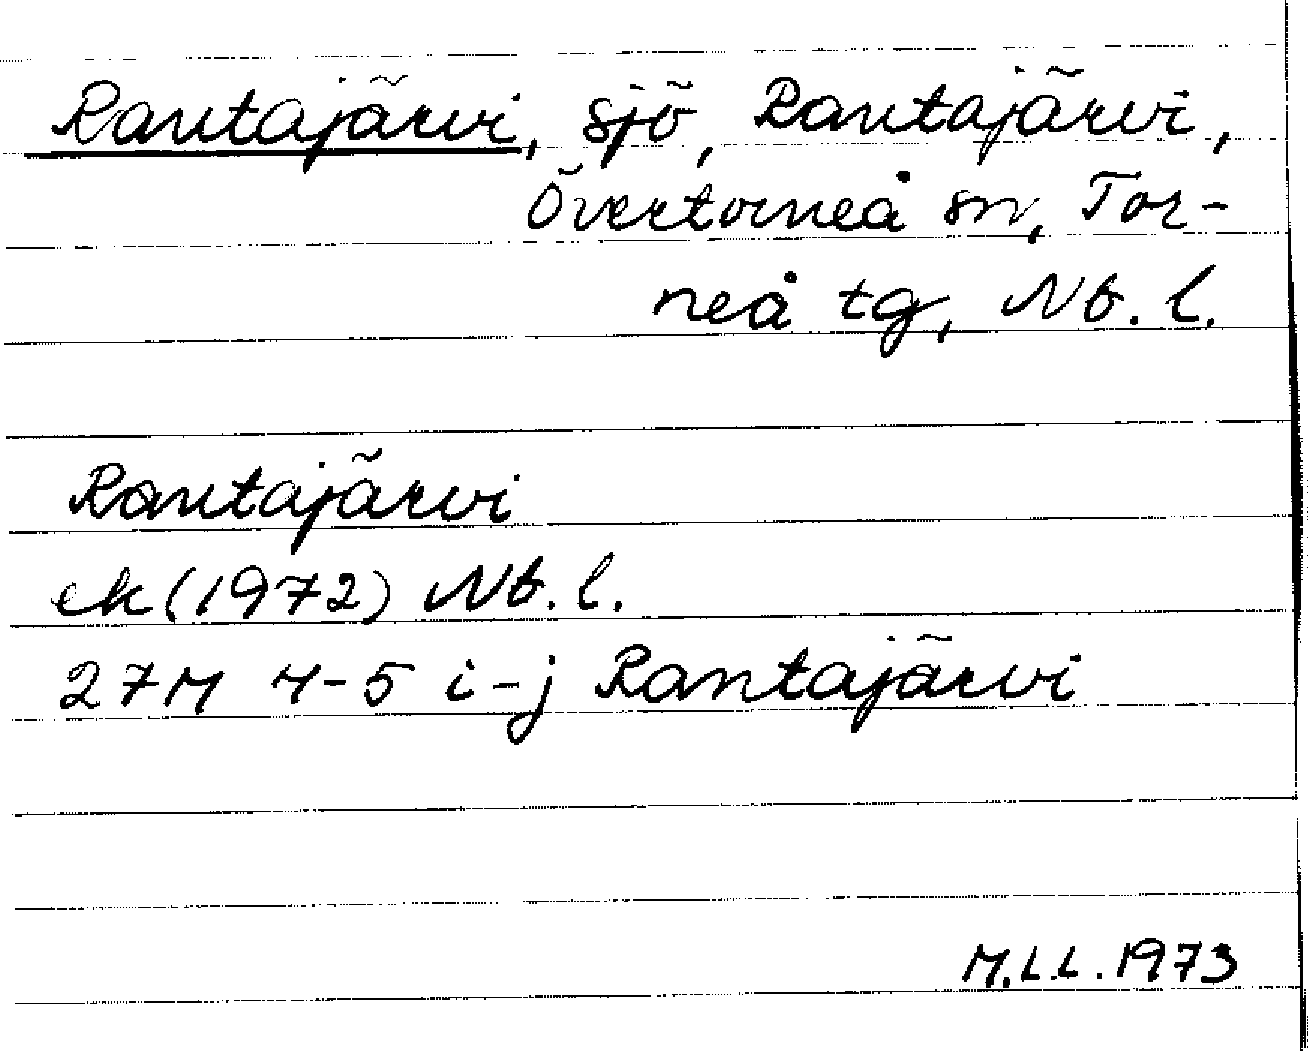 Rantajärvi, sjö, Rantajärvi,
Övertorneå sn, Tor-
neå tg, Nb. l.
Rantajärvi
ek (1972) Nb. l.
27M 4-5 i-j Rantajärvi
M.L.L. 1973